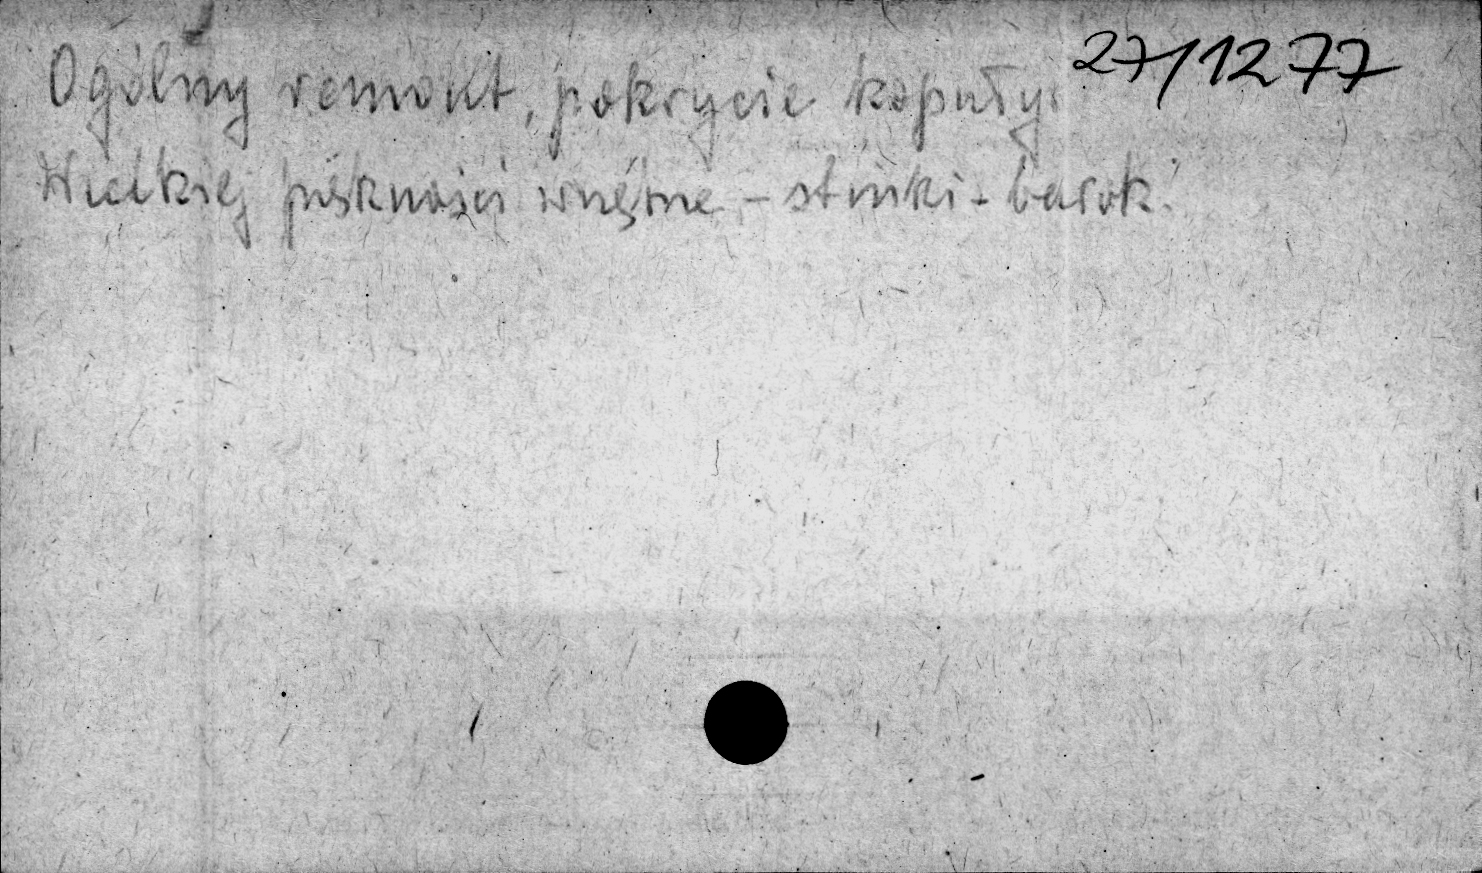 27/12 77
Ogólny remont, pokrycie kopuły.
Wielkiej piękności wnętrze - stiuki - barok.